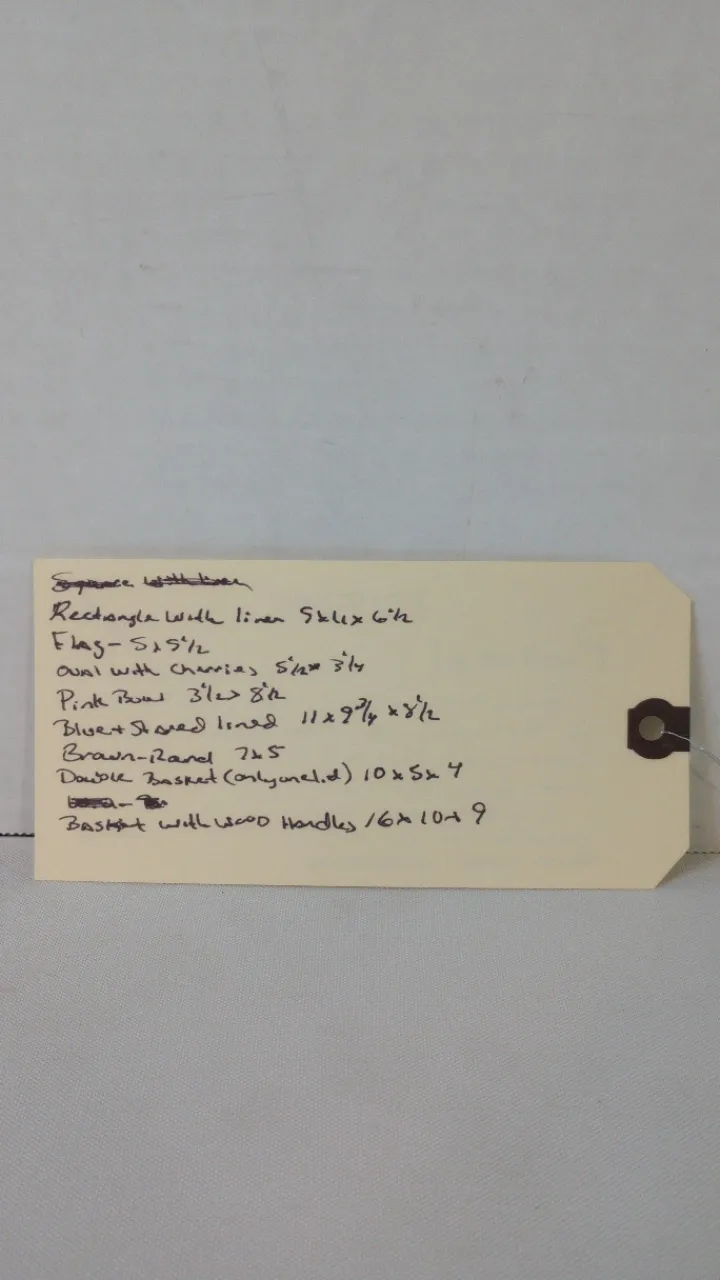 Square with liner
Rectangle with liner 5x4x 6 1/2
Flag - 5x5 1/2
oval with cherries 5 1/2 x 3 1/4
Pink Bow 3 1/2 x 8 1/2
Blue + Stared lined 11 x 9 3/4 x 8 1/2
Brown-Round 7x5
Double Basket (only one lid) 10x5x4
Basket with wood Handles 16x10x9